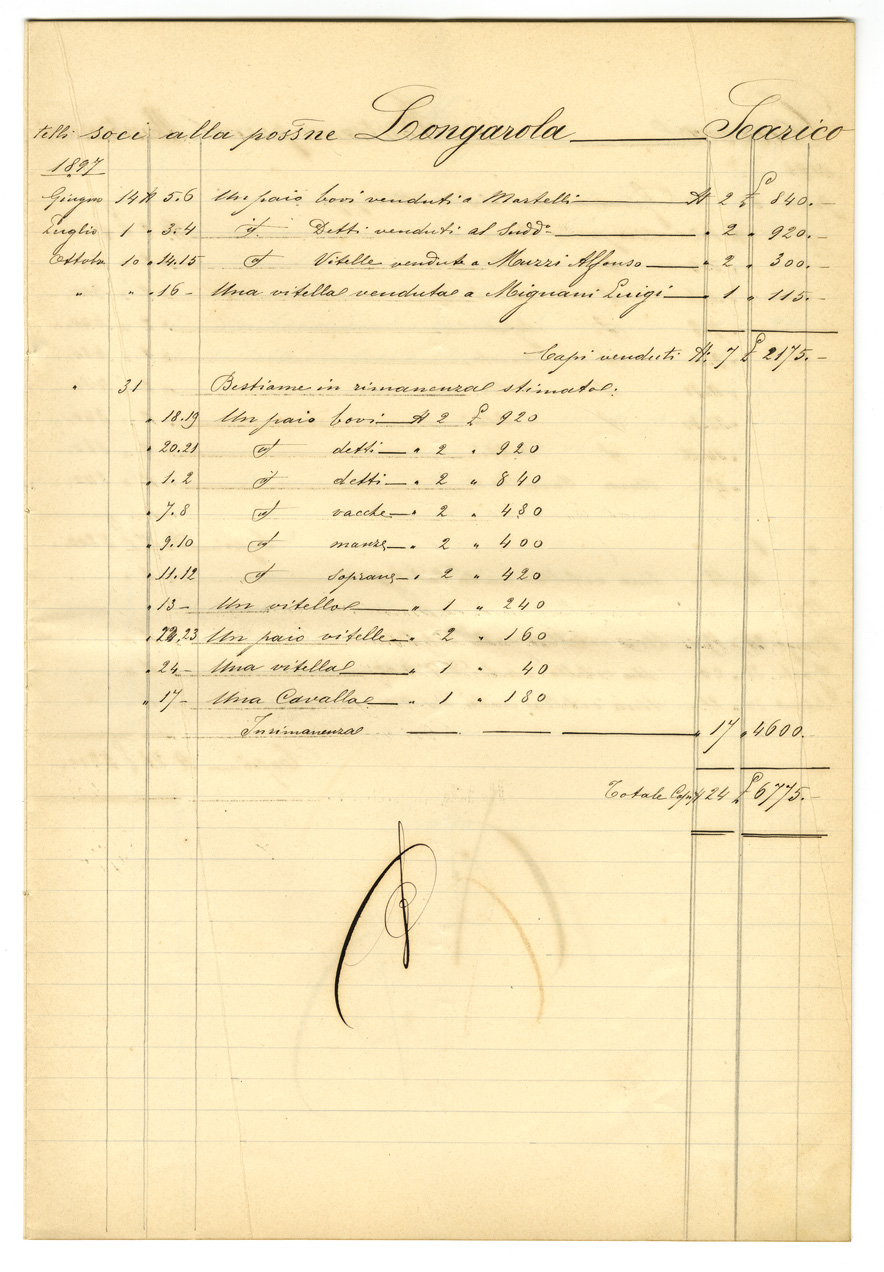 telli soci alla possne Longarola Scarico
1897
Giugno 14 N 5.6 Un paio bovi venduti a Martelli N 2 £ 840.-
Luglio 1 " 3.4 id Detti venduti al Sudd° " 2 " 920.-
Ottobre 10 " 14.15 id Vitelle vendute a Muzzi Alfonso " 2 " 300.-
" " " 16 - Una vitella venduta a Mignani Luigi " 1 " 115.-
Capi venduti N. 7 £ 2175.-
" 31 Bestiame in rimanenza stimato:
" 18.19 Un paio bovi N 2 £ 920
" 20.21 id detti " 2 " 920
" 1.2 id detti " 2 " 840
" 7.8 id vacche " 2 " 480
" 9.10 id manze " 2 " 400
" 11.12 id soprane " 2 " 420
" 13 - Un vitello " 1 " 240
" 22.23 Un paio vitelle " 2 " 160
" 24 - Una vitella " 1 " 40
" 17 - Una Cavalla " 1 " 180
In rimanenza " 17 " 4600.
Totale Capi N 24 £ 6775.-